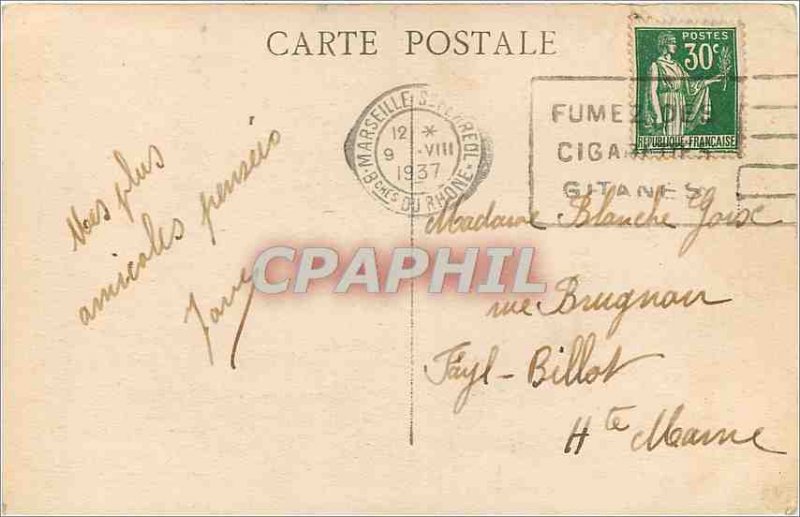 CARTE POSTALE
POSTES
30c
RÉPUBLIQUE FRANÇAISE
MARSEILLE ST FERREOL
12 *
9 VIII
1937
Bches DU RHÔNE
FUMEZ DES
CIGARETTES
GITANES
Mes plus
amicales pensées
CPAPHIL
Madame Blanche
rue Brugnon
Fayl-Billot
Hte Marne